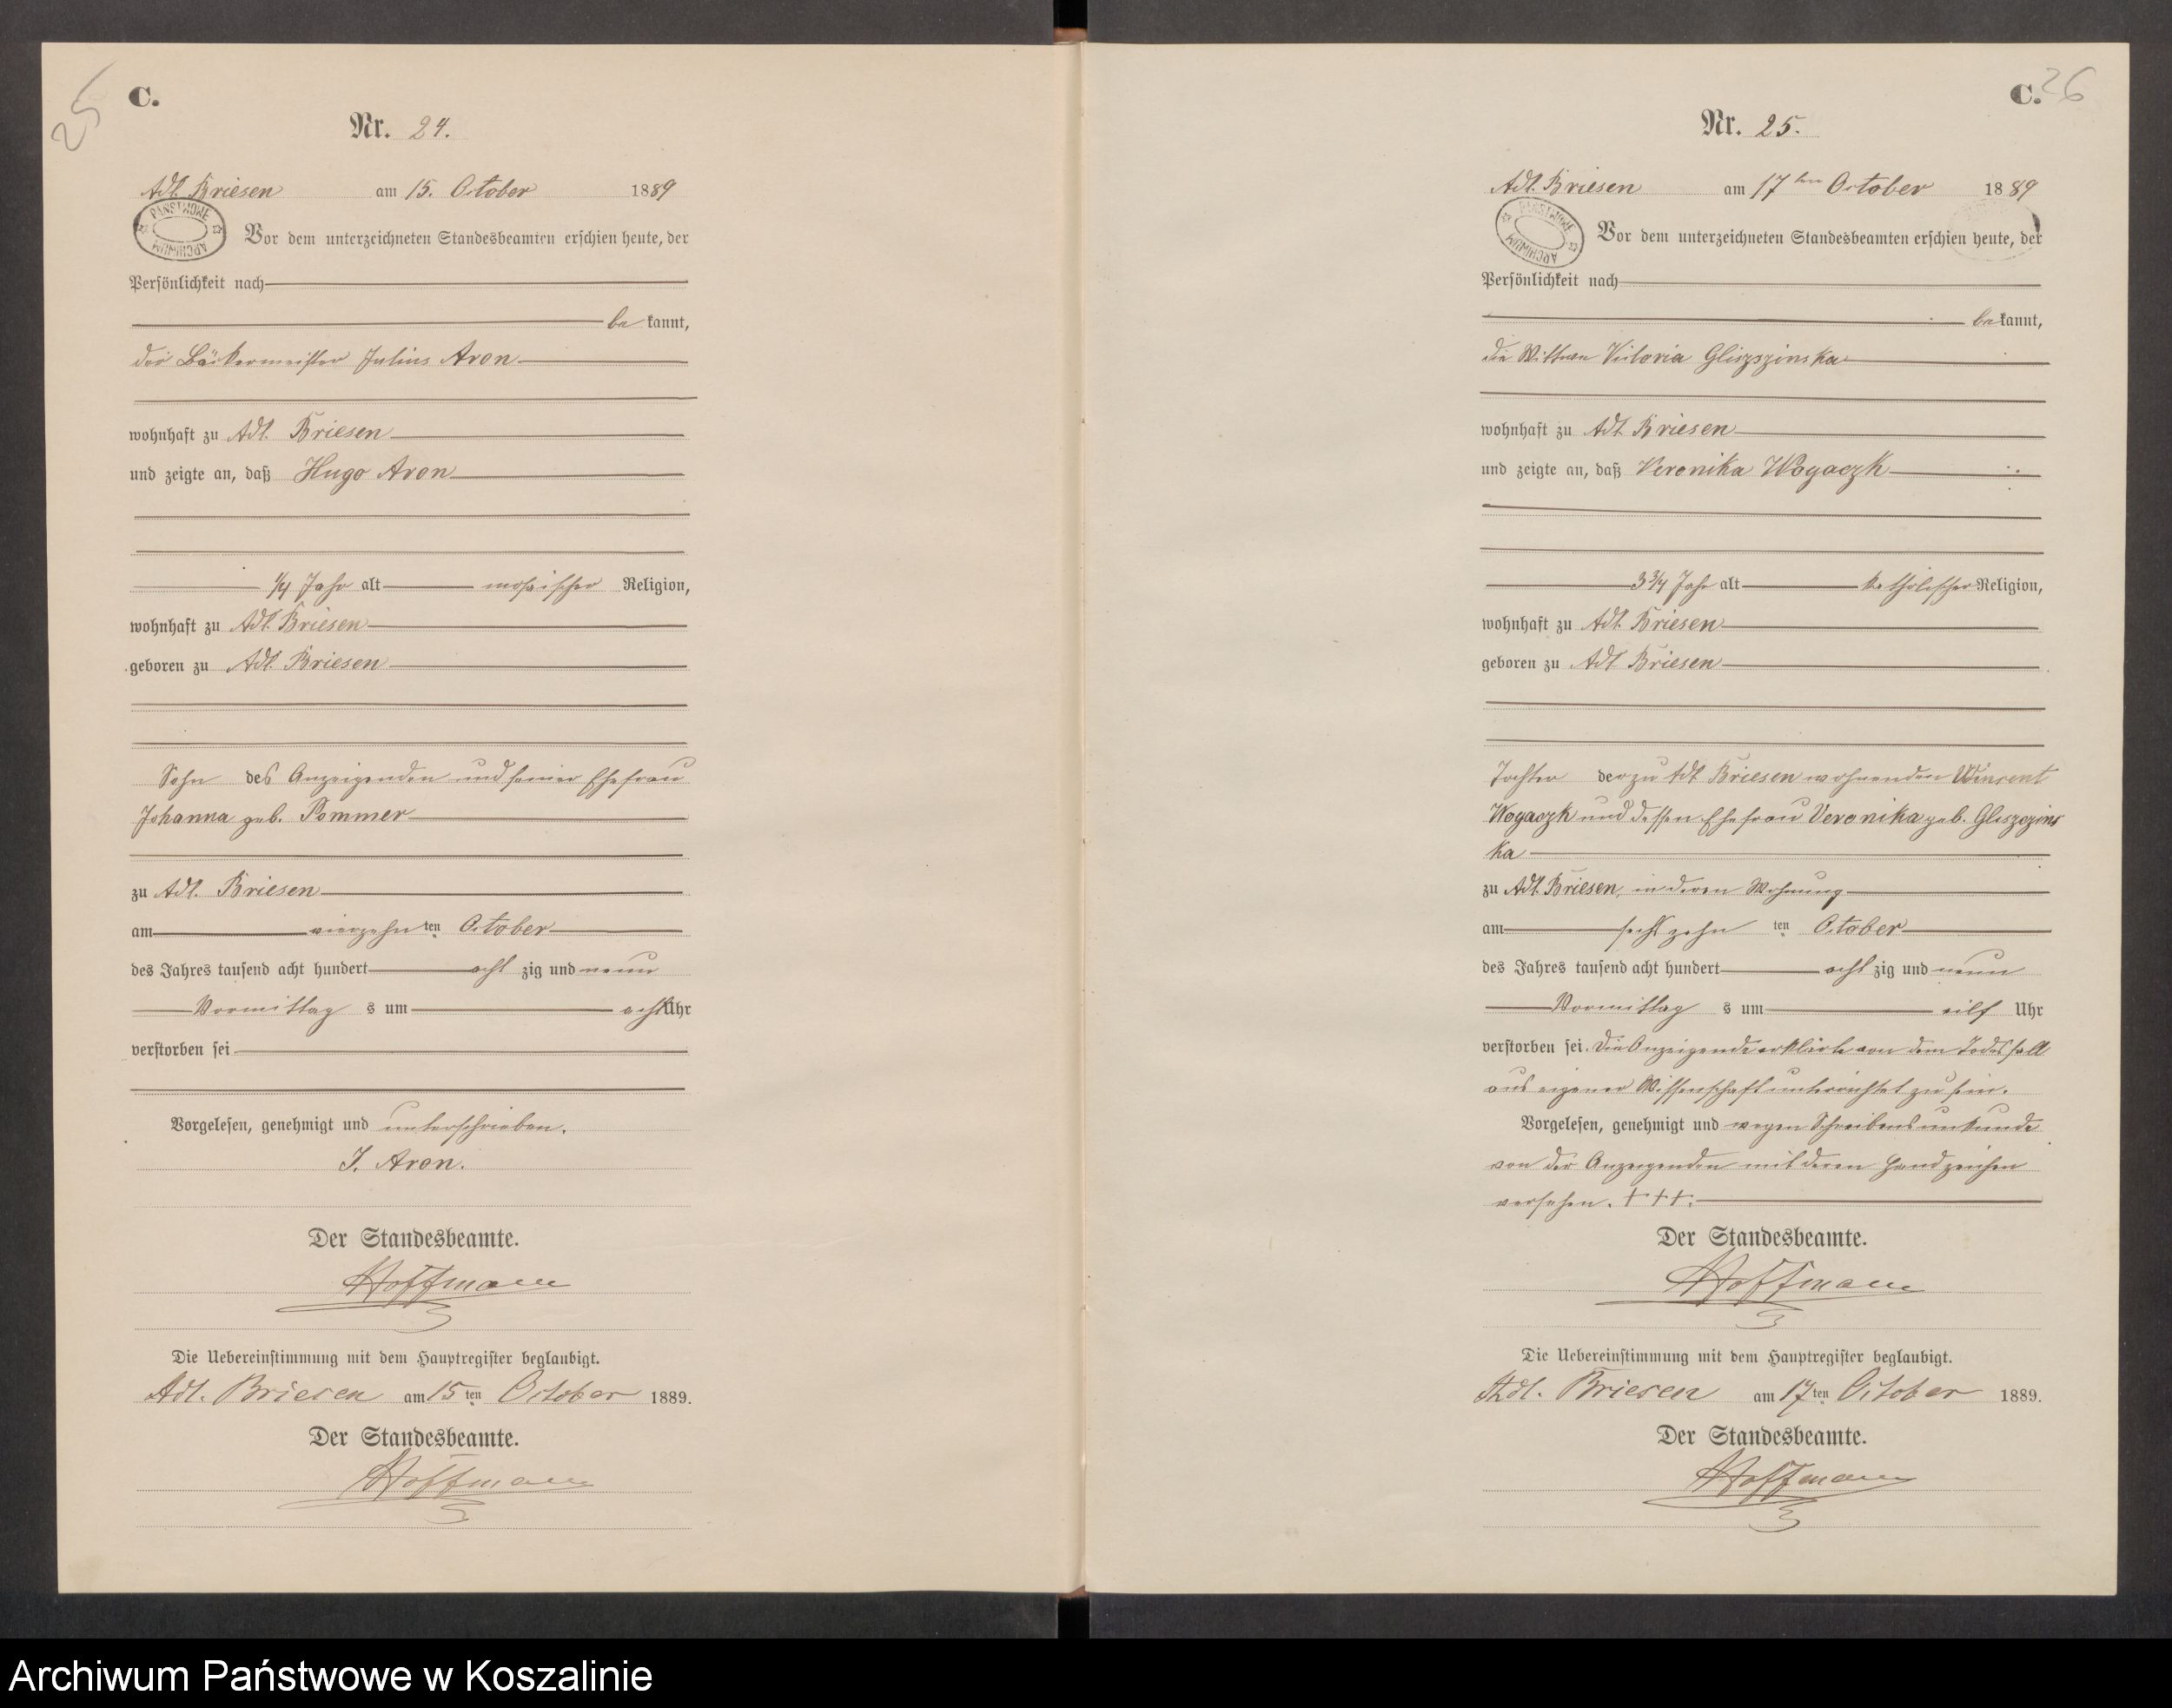 25
C.
Nr. 24.
Adl. Briesen am 15. October 1889
PAŃSTWOWE
ARCHIWUM
Vor dem unterzeichneten Standesbeamten erschien heute, der
Persönlichkeit nach
be kannt,
der Bäckermeister Julius Aron
wohnhaft zu Adl. Briesen
und zeigte an, daß Hugo Aron
1/4 Jahr alt mosaischer Religion,
wohnhaft zu Adl. Briesen
geboren zu Adl. Briesen
Sohn des Anzeigenden und seiner Ehefrau
Johanna geb. Pommer
zu Adl. Briesen
am vierzehn ten October
des Jahres tausend acht hundert acht zig und neun
Vormittag s um acht Uhr
verstorben sei
Vorgelesen, genehmigt und unterschrieben.
J. Aron.
Der Standesbeamte.
Hoffmann
Die Uebereinstimmung mit dem Hauptregister beglaubigt.
Adl. Briesen am 15 ten October 1889.
Der Standesbeamte.
Hoffmann
C. 26
Nr. 25.
Adl. Briesen am 17 ten October 1889
PAŃSTWOWE
ARCHIWUM
Vor dem unterzeichneten Standesbeamten erschien heute, der
Persönlichkeit nach
be kannt,
die Wittwe Victoria Gliszszinska
wohnhaft zu Adl. Briesen
und zeigte an, daß Veronika Wogaczk
3 3/4 Jahr alt katholischer Religion,
wohnhaft zu Adl. Briesen
geboren zu Adl. Briesen
Tochter der zu Adl. Briesen wohnenden Winsent
Wogaczk und dessen Ehefrau Veronika geb. Gliszczins
ka
zu Adl. Briesen, in deren Wohnung
am sechszehn ten October
des Jahres tausend acht hundert acht zig und neun
Vormittag s um eilf Uhr
verstorben sei. Die Anzeigende erklärte von dem Todesfall
aus eigener Wissenschaft unterrichtet zu sein.
Vorgelesen, genehmigt und wegen Schreibensunkunde
von der Anzeigenden mit deren Handzeichen
versehen. + + +.
Der Standesbeamte.
Hoffmann
Die Uebereinstimmung mit dem Hauptregister beglaubigt.
Adl. Briesen am 17 ten October 1889.
Der Standesbeamte.
Hoffmann
Archiwum Państwowe w Koszalinie